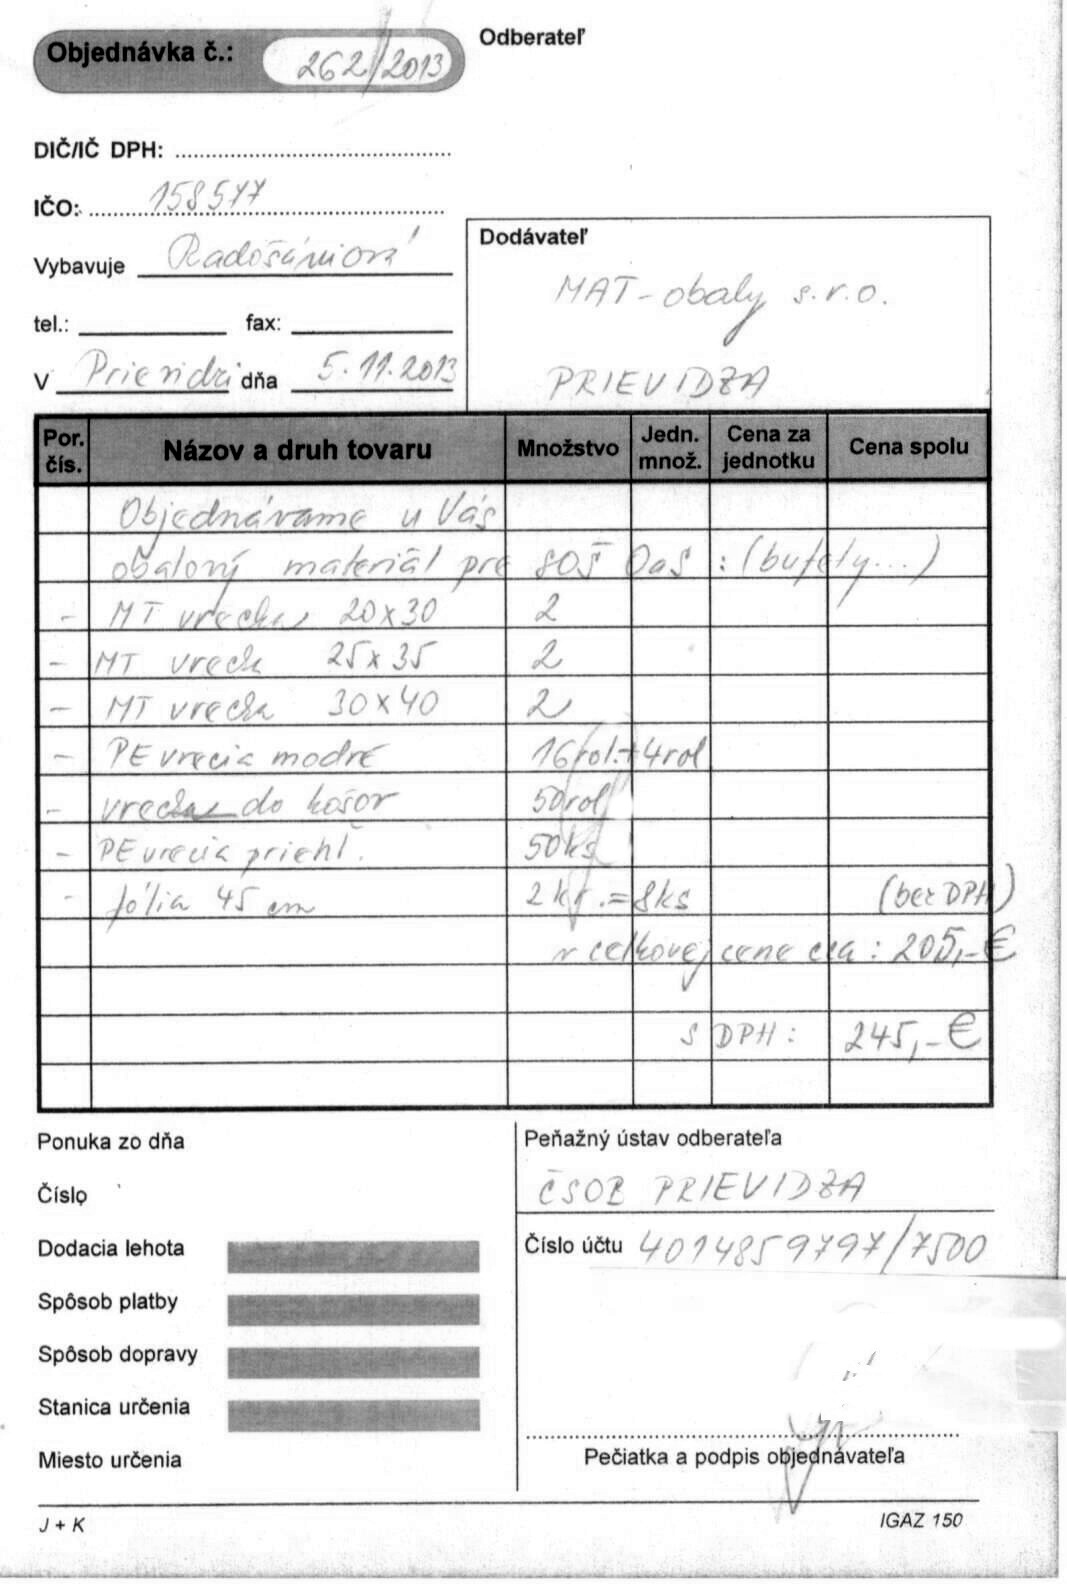 Objednávka č.: 262/2013
Odberateľ
DIČ/IČ DPH:
IČO: 158577
Vybavuje Radošániová
tel.: fax:
V Prievidzi dňa 5.11.2013
Dodávateľ
MAT-obaly s.r.o.
PRIEVIDZA
Por. čís. Názov a druh tovaru Množstvo Jedn. množ. Cena za jednotku Cena spolu
Objednávame u Vás
obalový materiál pre SOŠ OaS : (bufety...)
- MT vrecka 20x30 2
- MT vreck 25x35 2
- MT vrecka 30x40 2
- PE vrecia modré 16rol.+4rol
- vrecka do košov 50rol
- PE vrecia priehľ. 50ks
- fólia 45 cm 2 kr.=8ks (bez DPH)
v celkovej cene cca : 205,-€
s DPH : 245,-€
Ponuka zo dňa
Číslo
Dodacia lehota
Spôsob platby
Spôsob dopravy
Stanica určenia
Miesto určenia
Peňažný ústav odberateľa
ČSOB PRIEVIDZA
Číslo účtu 4014859797/7500
Pečiatka a podpis objednávateľa
J + K
IGAZ 150